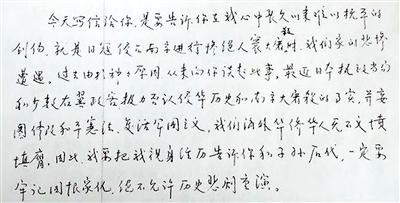 今天写信给你，是要告诉你在我心中长久以来难以抚平的
创伤，就是日寇侵占南京进行惨绝人寰大屠杀时，我们家的悲惨
遭遇。过去由于种种原因从未向你谈起此事。最近日本执政当局
和少数右翼政客极力否认侵华历史和南京大屠杀的事实，并妄
图修改和平宪法，复活军国主义，我们海外华侨华人无不义愤
填膺。因此，我要把我亲身经历告诉你和子孙后代，一定要
牢记国恨家仇，绝不允许历史悲剧重演。